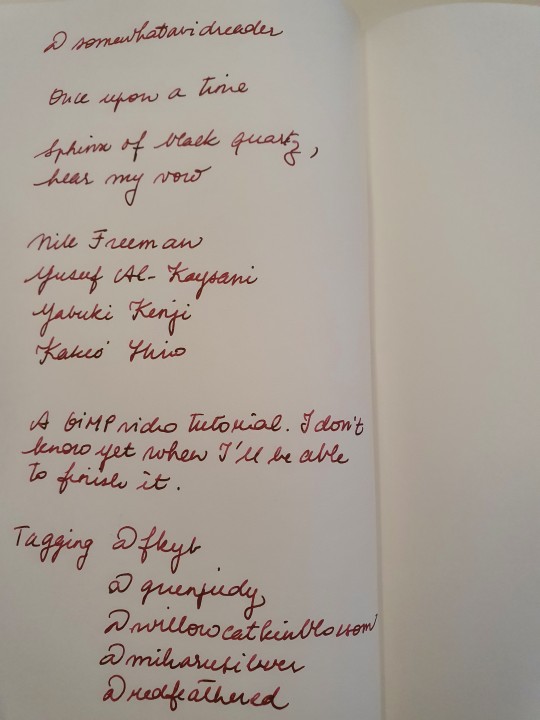 @somewhatavidreader
Once upon a time
Sphinx of black quartz,
hear my vow
Nile Freeman
Yusuf Al-Kaysani
Yabuki Kenji
A GiMP video tutorial. I don't
know yet when I'll be able
to finish it.
Tagging @fkyb
@willowcatkinblossom
@redfeathered